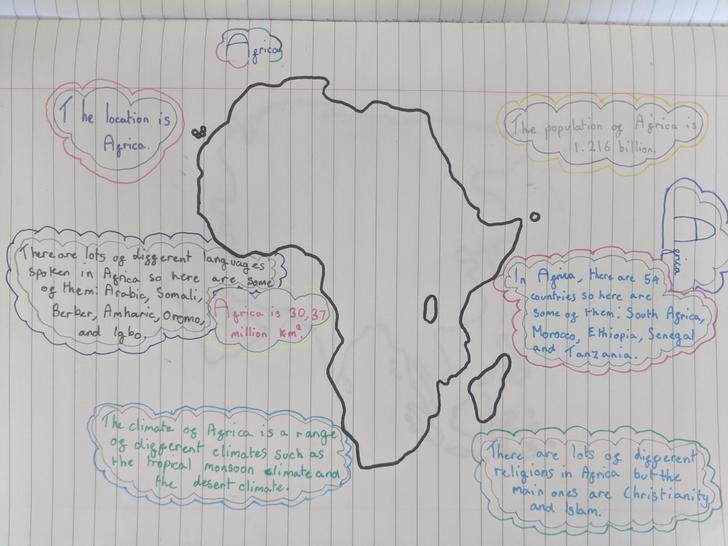 Africa
The location is
Africa.
The population of Africa is
1.216 billion.
Africa
There are lots of different languages
spoken in Africa so here are some
of them: Arabic, Somali,
Berber, Amharic, Oromo,
and Igbo.
Africa is 30,37
million km².
In Africa, there are 54
countries so here are
some of them: South Africa,
Morocco, Ethiopia, Senegal
and Tanzania.
The climate of Africa is a range
of different climates such as
the tropical monsoon climate and
the desert climate.
There are lots of different
religions in Africa but the
main ones are Christianity
and Islam.